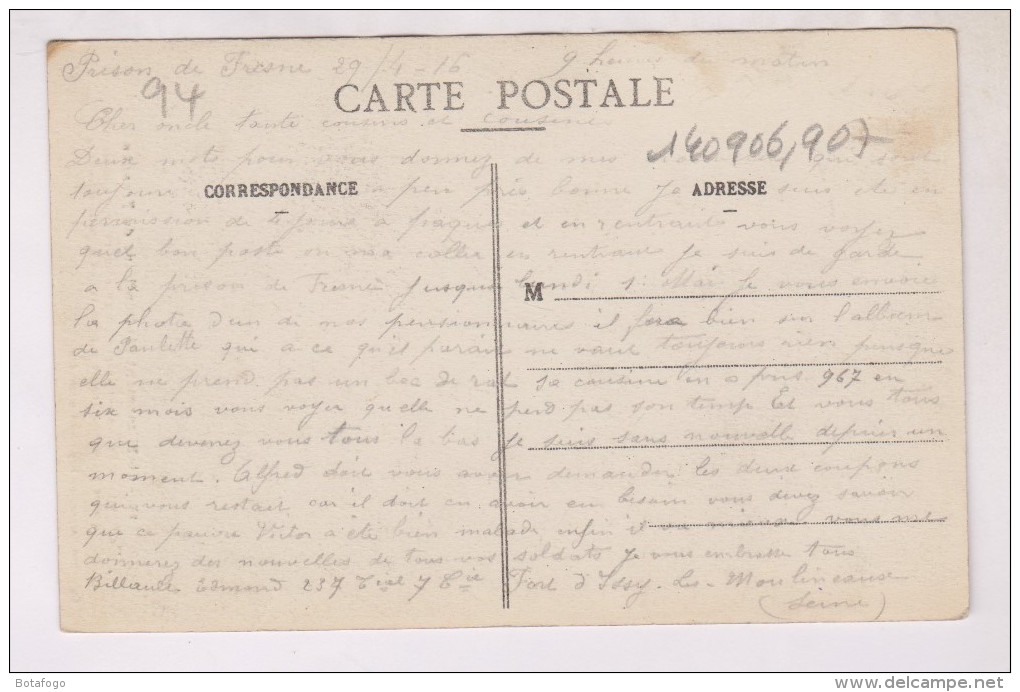 Prison de Fresne 29/4-16 9 heures du matin
94
CARTE POSTALE
Cher oncle tante cousins et cousines
140906,907
Deux mots pour vous donnez de mes qui sont
CORRESPONDANCE
ADRESSE
toujours a peu près bonne Je suis été en
permission de 4 jours a paques et en rentrant vous voyez
quel bon poste on m'a coller en rentrant Je suis de garde
a la prison de Fresne Jusqu'a lundi 1 Mai Je vous envoie
M
la photo d'un de nos pensionnaires il fera bien sur l'album
de Paulette qui a ce qu'il parait ne vaut toujours rien puisque
elle ne prend pas un bec de rat sa cousine en a pris 967 en
six mois vous voyez quelle ne perd pas son temps Et vous tous
que devenez vous tous la bas Je suis sans nouvelle depuis un
moment. Alfred doit vous avoir demander les deux coupons
qui vous restait car il doit en avoir eu besoin vous devez savoir
que ce pauvre Victor a été bien malade enfin il va mieux vous me
donnerez des nouvelles de tous vos soldats Je vous embrasse tous
Billault Edmond 237 Tial 7 Cie Fort d'Issy-les-Moulineaux
(Seine)
Botafogo
www.delcampe.net